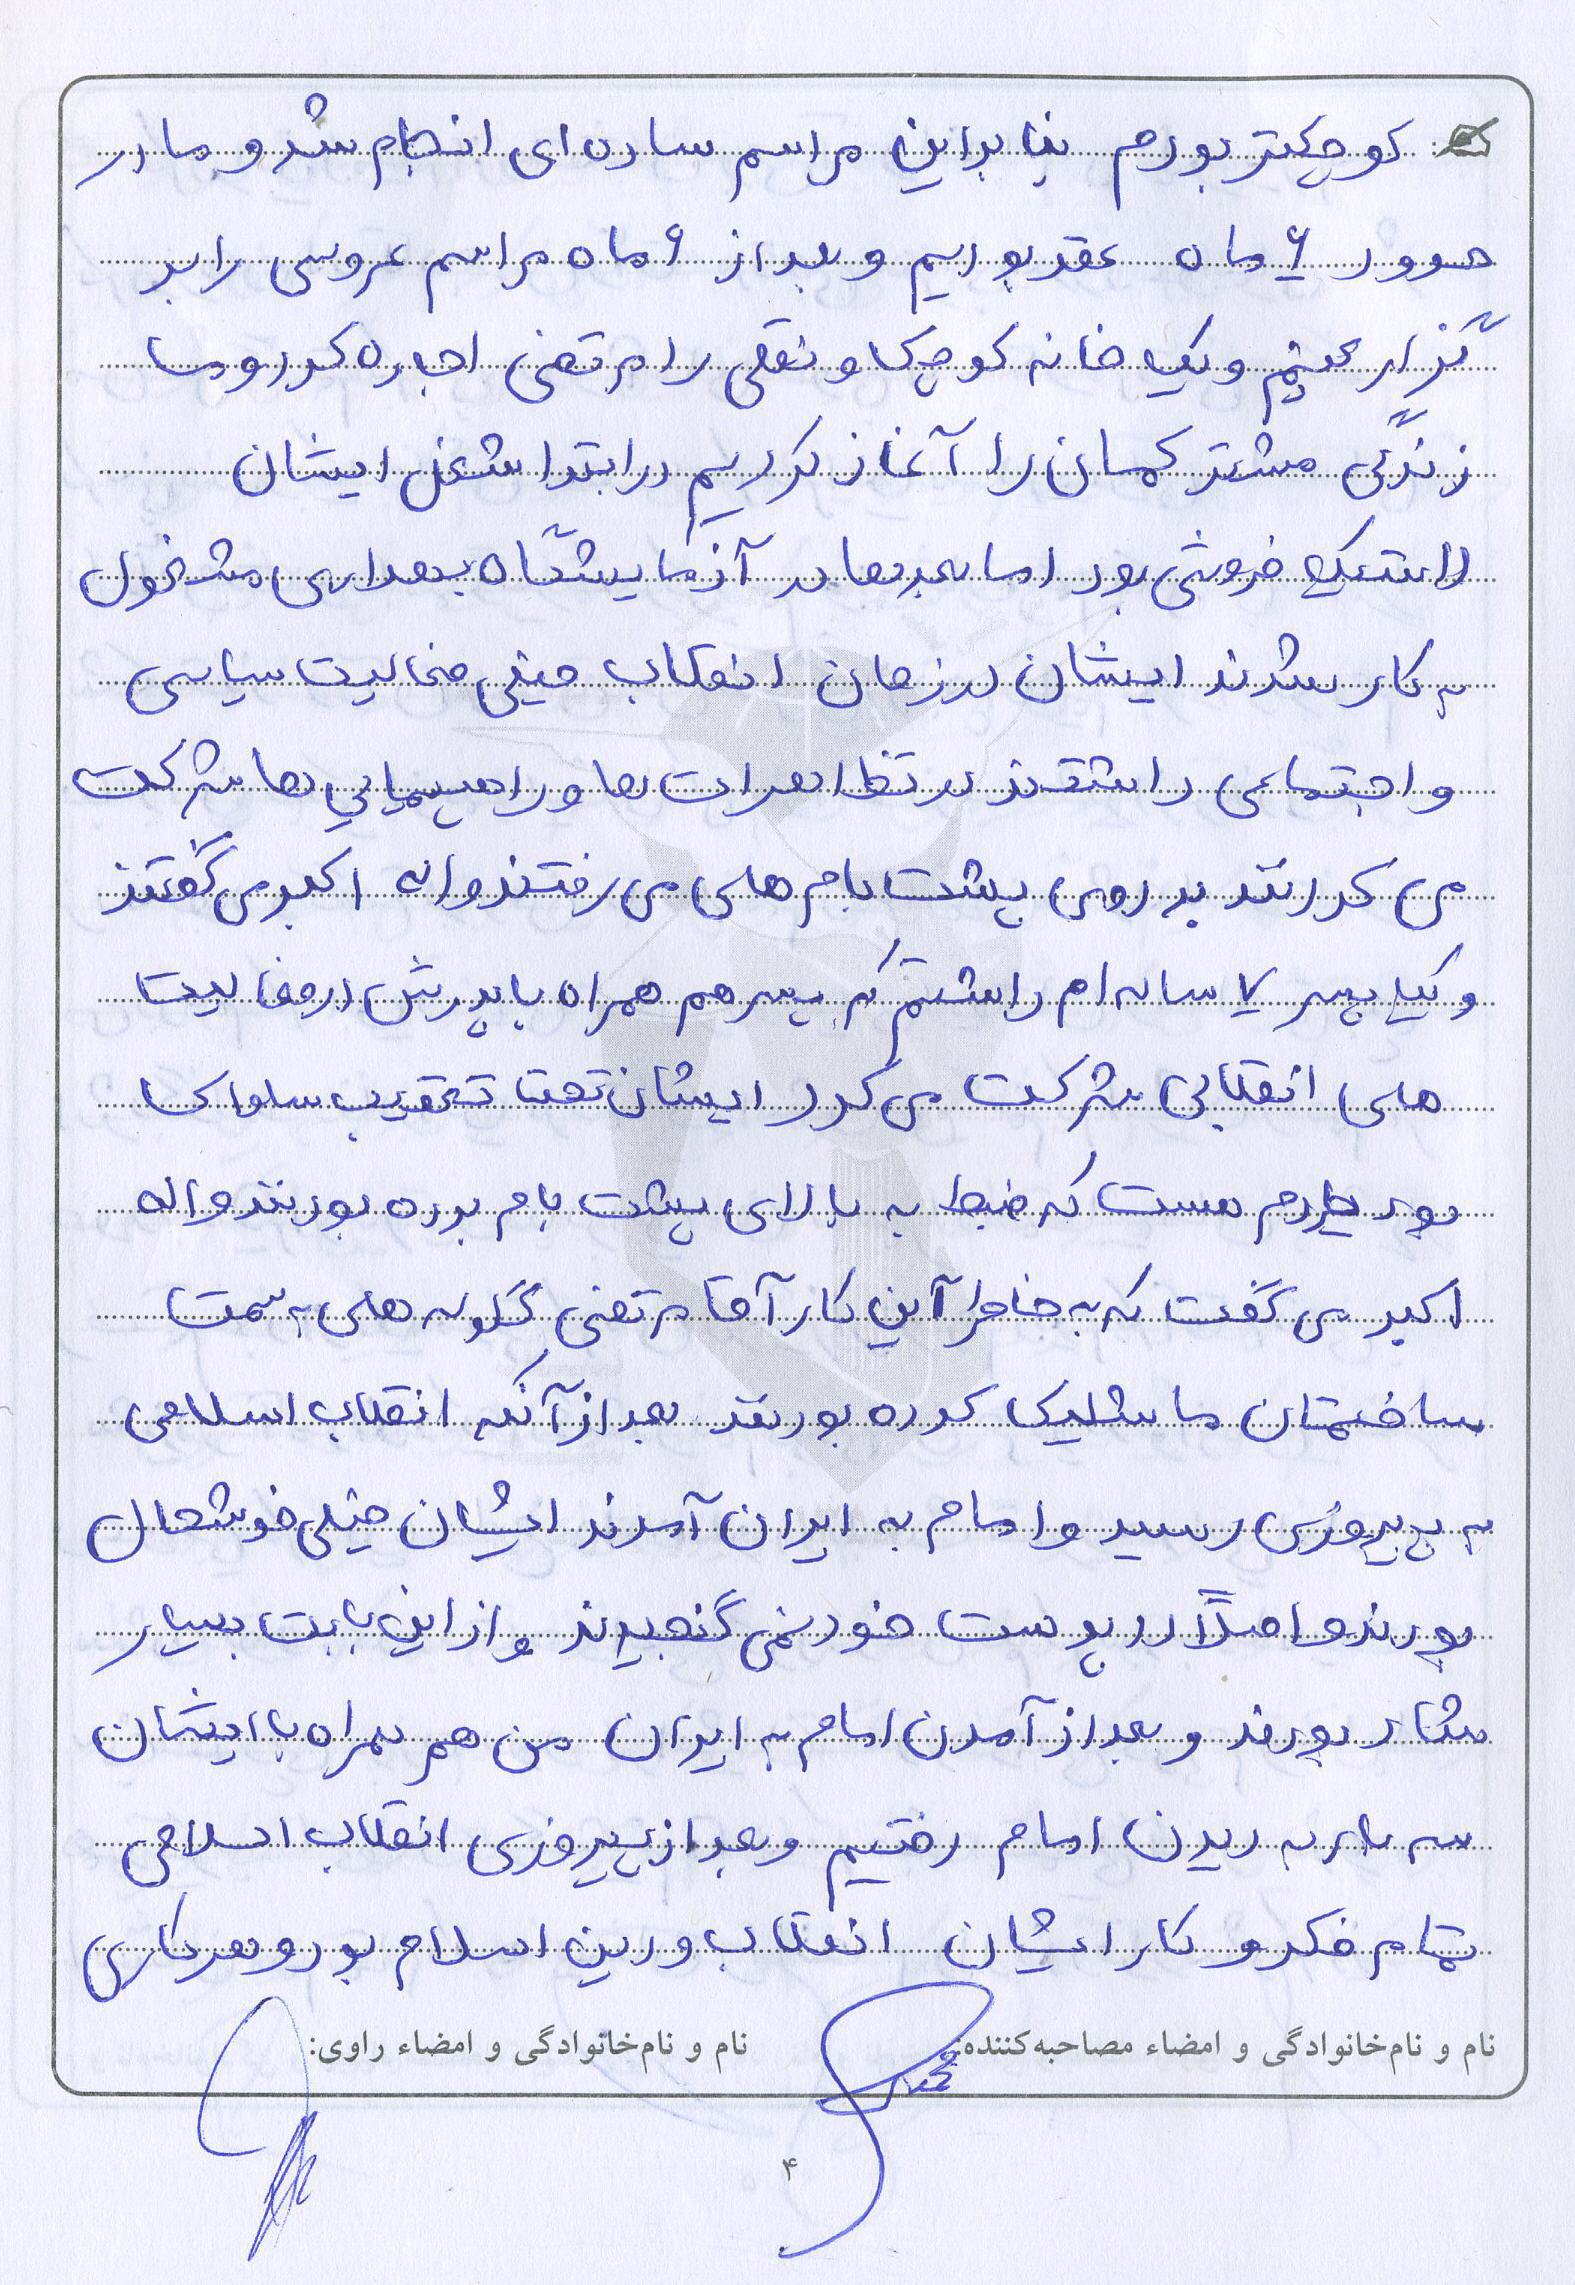 کوچکتر بودم بنابراین مراسم ساده‌ای انجام شد و ما در
حدود ۶ ماه عقد بودیم و بعد از ۶ ماه مراسم عروسی را بر
گزار کردیم و یک خانه کوچک و نقلی را مرتضی اجاره کرد و ما
زندگی مشترکمان را آغاز کردیم در ابتدا شغل ایشان
لاستیک فروشی بود اما بعدها در آزمایشگاه بهداری مشغول
به کار شدند ایشان در زمان انقلاب خیلی فعالیت سیاسی
و اجتماعی داشتند در تظاهرات ها و راهپیمایی ها شرکت
می کردند بر روی پشت بام های می رفتند و اله اکبر می گفتند
و یک پسر ۷ ساله ام داشتم که پسرم هم همراه با پدرش در فعالیت
های انقلابی شرکت می کرد ایشان تحت تعقیب ساواک
بود یادم هست که ضبط به بالای پشت بام برده بودند و اله
اکبر می گفت که به خاطر این کار آقا مرتضی گلوله های به سمت
ساختمان ما شلیک کرده بودند. بعد از آنکه انقلاب اسلامی
به پیروزی رسید و امام به ایران آمدند ایشان خیلی خوشحال
بودند و اصلاً در پوست خود نمی گنجیدند و از این بابت بسیار
شاد بودند و بعد از آمدن امام به ایران من هم همراه با ایشان
سه بار به دیدن امام رفتیم و بعد از پیروزی انقلاب اسلامی
تمام فکر و کار ایشان انقلاب و دین اسلام بود و هر کاری
نام و نام‌خانوادگی و امضاء مصاحبه‌کننده: نام و نام‌خانوادگی و امضاء راوی:
۴